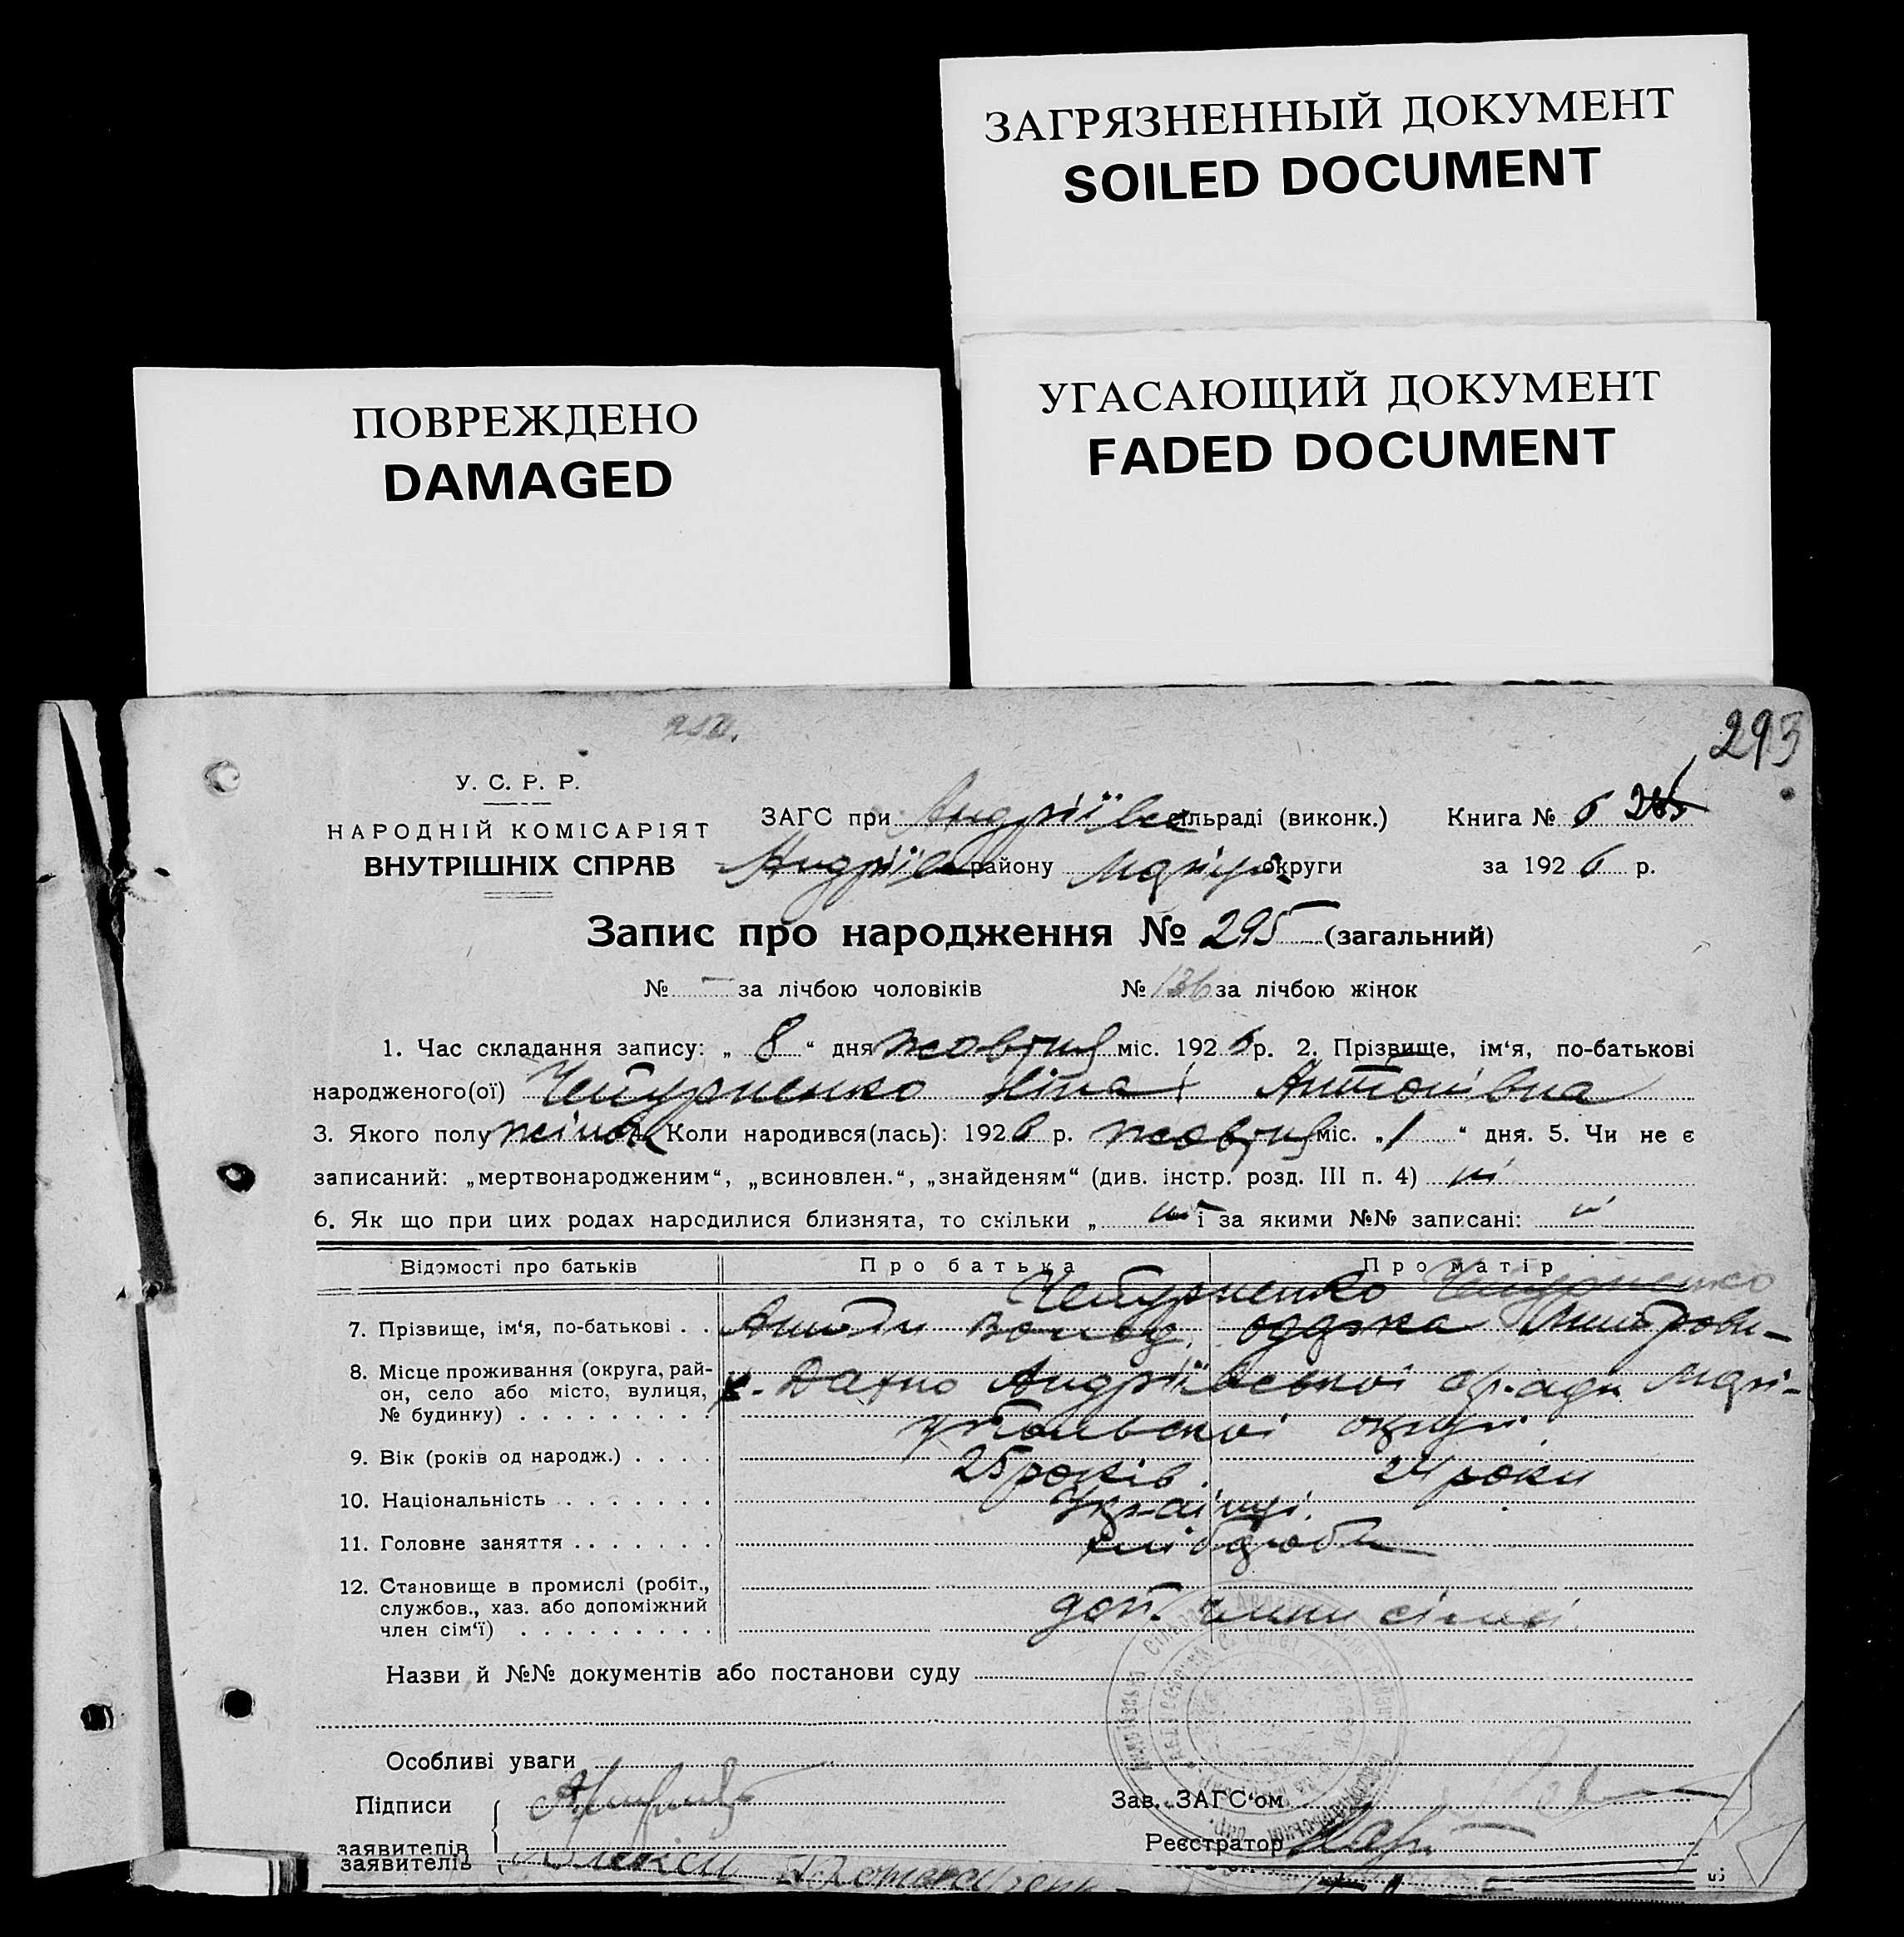 ЗАГРЯЗНЕННЫЙ ДОКУМЕНТ
SOILED DOCUMENT
ПОВРЕЖДЕНО
DAMAGED
УГАСАЮЩИЙ ДОКУМЕНТ
FADED DOCUMENT
293
У. С. Р. Р.
НАРОДНІЙ КОМІСАРІЯТ
ВНУТРІШНІХ СПРАВ
ЗАГС при Андріївс сільраді (виконк.) Книга № 6
Андріїв району Маріуп. округи за 1926 р.
Запис про народження № 295 (загальний)
№ — за лічбою чоловіків № 136 за лічбою жінок
1. Час складання запису: „ 8 “ дня жовтня міс. 1926 р. 2. Прізвище, ім‘я, по-батькові
народженого(ої) Чепурненко Ніна Антонівна
3. Якого полу жіноч 4. Коли народився(лась): 1926 р. жовтня міс. „ 1 “ дня. 5. Чи не є
записаний: „мертвонародженим“, „всиновлен.“, „знайденям“ (див. інстр. розд. III п. 4) ні
6. Як що при цих родах народилися близнята, то скільки „ і за якими №№ записані:
Відомості про батьків Про батька Про матір
Чепурненко Чепурненко
7. Прізвище, ім‘я, по-батькові . . Антон Волод.
8. Місце проживання (округа, рай-
он, село або місто, вулиця,
№ будинку) . . . . . . . . .
х. Андріївської с/ради Марі-
упольської округи
9. Вік (років од народж.) . . . . 25 років. 24 роки
10. Національність . . . . . . . Українці.
11. Головне заняття . . . . . . . хлібороби
12. Становище в промислі (робіт.,
службов., хаз. або допоміжний
член сім‘ї) . . . . . . . . .
доп. члени сімї.
Назви й №№ документів або постанови суду
Особливі уваги
Підписи
заявителів
Зав. ЗАГС‘ом
Реєстратор
заявителів Олексій